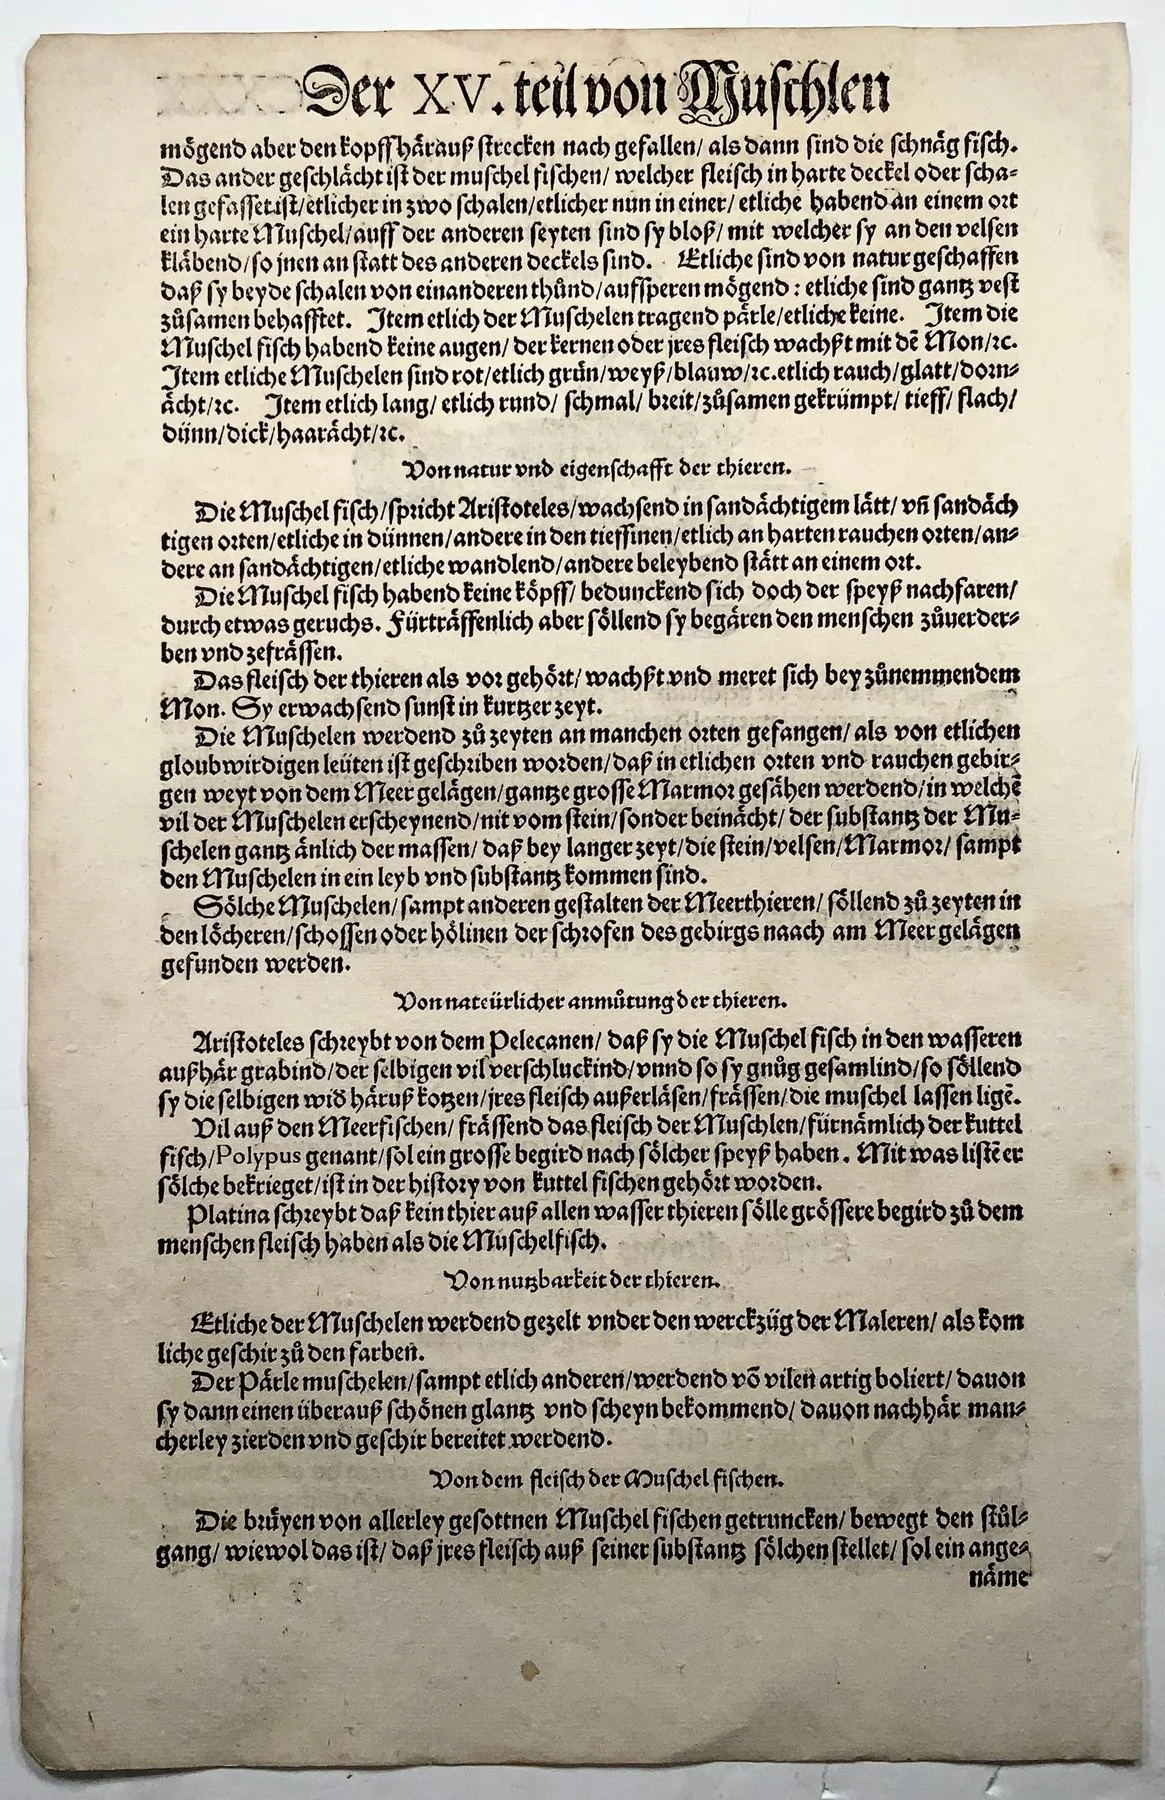 Der XV. teil von Muschlen
mögend aber den kopff härauß strecken nach gefallen/ als dann sind die schnäg fisch.
Das ander geschlächt ist der muschel fischen/ welcher fleisch in harte deckel oder scha-
len gefasset ist/etlicher in zwo schalen/etlicher nun in einer/ etliche habend an einem ort
ein harte Muschel/auff der anderen seyten sind sy bloß/ mit welcher sy an den velsen
kläbend/so jnen an statt des anderen deckels sind. Etliche sind von natur geschaffen
daß sy beyde schalen von einanderen thůnd/aufsperen mögend : etliche sind gantz vest
zůsamen behafftet. Item etlich der Muschelen tragend pärle/etliche keine. Item die
Muschel fisch habend keine augen/ der kernen oder jres fleisch wachßt mit dē Mon/ꝛc.
Item etliche Muschelen sind rot/etlich grün/weyß/blauw/ꝛc.etlich rauch/glatt/dorn-
ächt/ꝛc. Item etlich lang/ etlich rund/ schmal/ breit/zůsamen gekrümpt/ tieff/ flach/
dünn/dick/haarächt/ꝛc.
Von natur vnd eigenschafft der thieren.
Die Muschel fisch/spricht Aristoteles/wachsend in sandächtigem lätt/ vñ sandäch
tigen orten/etliche in dünnen/andere in den tieffinen/etlich an harten rauchen orten/an-
dere an sandächtigen/etliche wandlend/andere beleybend stätt an einem ort.
Die Muschel fisch habend keine köpff/ bedunckend sich doch der speyß nachfaren/
durch etwas geruchs. Fürträffenlich aber söllend sy begären den menschen zůuerder-
ben vnd zefrässen.
Das fleisch der thieren als vor gehört/ wachßt vnd meret sich bey zůnemmendem
Mon. Sy erwachsend sunst in kurtzer zeyt.
Die Muschelen werdend zů zeyten an manchen orten gefangen/ als von etlichen
gloubwirdigen leüten ist geschriben worden/daß in etlichen orten vnd rauchen gebir-
gen weyt von dem Meer gelägen/gantze grosse Marmor gesähen werdend/in welchē
vil der Muschelen erscheynend/nit vom stein/sonder beinächt/ der substantz der Mu-
schelen gantz änlich der massen/ daß bey langer zeyt/die stein/velsen/Marmor/ sampt
den Muschelen in ein leyb vnd substantz kommen sind.
Sölche Muschelen/sampt anderen gestalten der Meerthieren/ söllend zů zeyten in
den löcheren/schossen oder hölinen der schrofen des gebirgs naach am Meer gelägen
gefunden werden.
Von nateürlicher anmůtung der thieren.
Aristoteles schreybt von dem Pelecanen/ daß sy die Muschel fisch in den wasseren
außhär grabind/der selbigen vil verschluckind/vnnd so sy gnůg gesamlind/so söllend
sy die selbigen wid häruß kotzen/jres fleisch außerläsen/frässen/die muschel lassen ligē.
Vil auß den Meerfischen/ frässend das fleisch der Muschlen/fürnämlich der kuttel
fisch/Polypus genant/sol ein grosse begird nach sölcher speyß haben. Mit was listē er
sölche bekrieget/ist in der history von kuttel fischen gehört worden.
Platina schreybt daß kein thier auß allen wasser thieren sölle grössere begird zů dem
menschen fleisch haben als die Müschelfisch.
Von nutzbarkeit der thieren.
Etliche der Muschelen werdend gezelt vnder den werckzüg der Maleren/ als kom
liche geschir zů den farben.
Der Pärle muschelen/sampt etlich anderen/werdend vō vilen artig boliert/ dauon
sy dann einen überauß schönen glantz vnd scheyn bekommend/ dauon nachhär man-
cherley zierden vnd geschir bereitet werdend.
Von dem fleisch der Muschel fischen.
Die brüyen von allerley gesottnen Muschel fischen getruncken/ bewegt den stůl-
gang/ wiewol das ist/ daß jres fleisch auß seiner substantz sölchen stellet/ sol ein ange-
näme